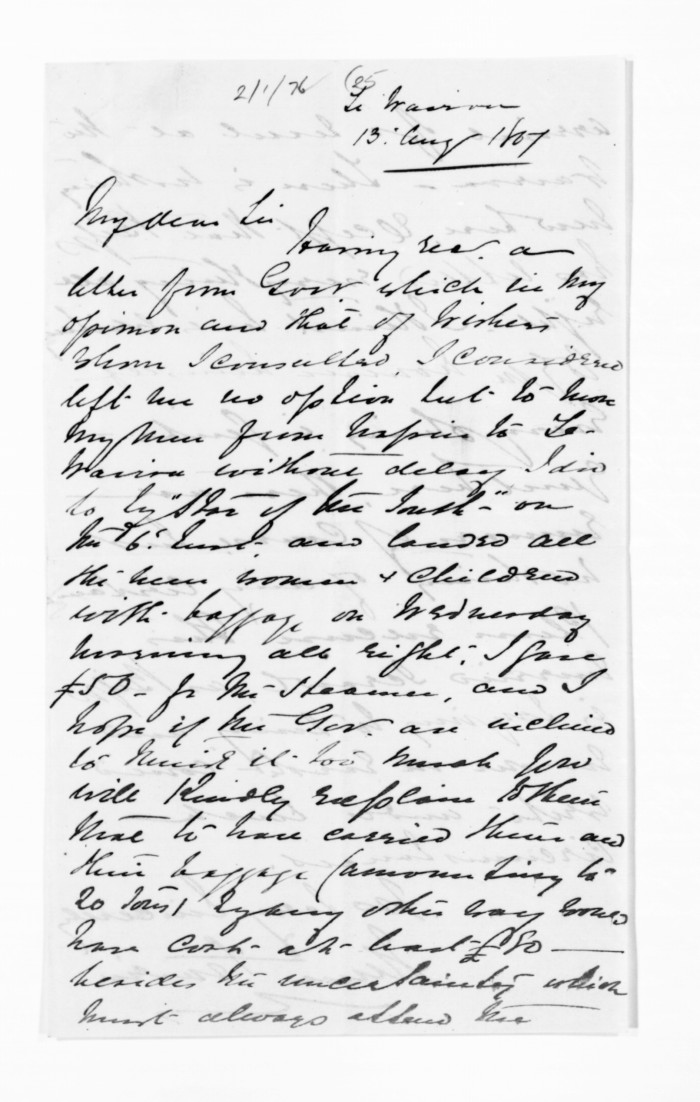 2/1/76 (25
Te Wairoa
13th Augt 1867
My dear Sir
Having recd. a
letter from Govr which in my
opinion and that of Wishers
whom I consulted, I considered
left me no option but to move
my men from Napier to Te-
Wairoa without delay I did
so by "Star of the South-" on
the 6th Inst. and landed all
the men women & children
with baggage on Wednesday
morning all right; I gave
£50- for the steamer, and I
hope if the Gov. are inclined
to think it too much you
will kindly explain to them
that to have carried them and
their baggage (amounting to
20 tons) by any other way would
have cost at least £80 —
besides the uncertainty which
must always attend the